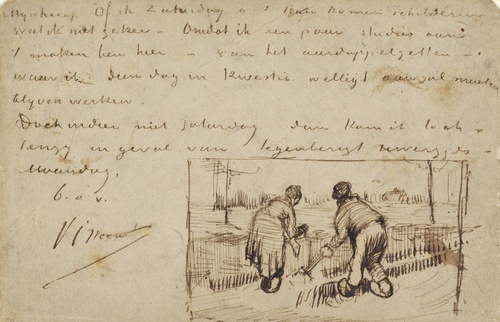 Mynheer, Of ik Zaturdag a s kan komen schilderen
weet ik niet zeker - Omdat ik een paar studies aan
't maken ben hier - van het aardappelzetten -
waar ik dien dag in kwestie welligt aan zal moeten
blyven werken.
Doch indien niet Zaturdag dan kom ik toch
tenzy in geval van tegenberigt Uwerzyds
Maandag.
b. a. v.
Vincent